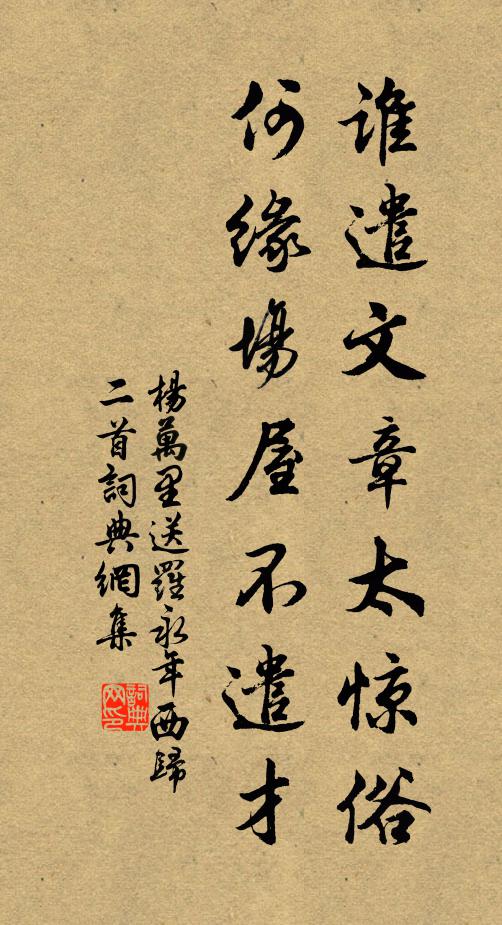 谁遣文章太惊俗
何緣場屋不遣才
楊萬里送羅永年西歸
二首詞典網集
詞典
网印